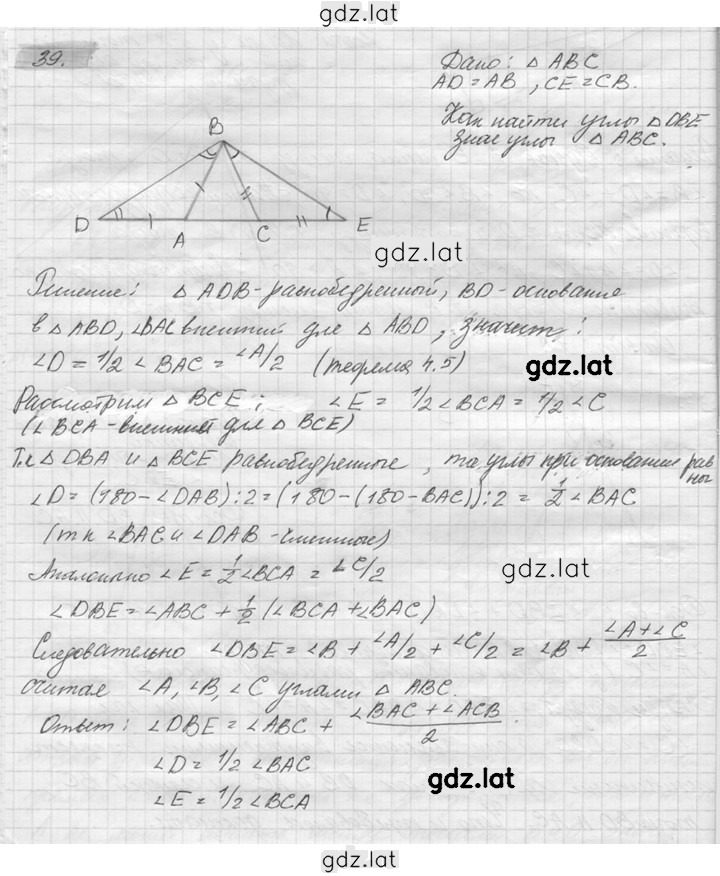 gdz.lat
39.
Дано: △ ABC
AD = AB, CE = CB.
Как найти углы △DBE
зная углы △ ABC.
B
D
A
C
E
gdz.lat
Решение: △ ADB - равнобедренный, BD - основание
в △ ABD, ∠BAC внешний для △ ABD, значит:
∠D = 1/2 ∠BAC = ∠A/2 (теорема 4.5)
gdz.lat
Рассмотрим △ BCE; ∠E = 1/2 ∠BCA = 1/2 ∠C
(∠BCA - внешний для △ BCE)
Т.к △ DBA и △ BCE равнобедренные, то углы при основании равны
∠D = (180 - ∠DAB) : 2 = (180 - (180 - BAC)) : 2 = 1/2 ∠BAC
(т к ∠BAC и ∠DAB - смежные)
gdz.lat
Аналогично ∠E = 1/2 ∠BCA = ∠C/2
∠DBE = ∠ABC + 1/2 (∠BCA + ∠BAC)
Следовательно ∠DBE = ∠B + ∠A/2 + ∠C/2 = ∠B + (∠A + ∠C)/2
считая ∠A, ∠B, ∠C углами △ ABC.
Ответ: ∠DBE = ∠ABC + (∠BAC + ∠ACB)/2.
∠D = 1/2 ∠BAC
gdz.lat
∠E = 1/2 ∠BCA
gdz.lat